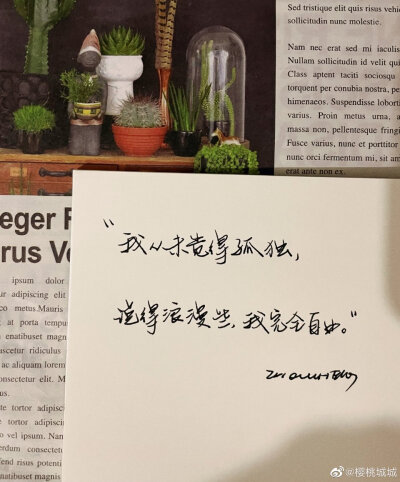 Sed tristique elit quis risus vehic
sollicitudin nunc molestie.
Nam nec erat sed mi iaculis
Nullam sollicitudin id velit qui
Class aptent taciti sociosqu
torquent per conubia nostra, pe
himenaeos. Suspendisse lobortis
varius. Proin metus urna, a
massa non, pellentesque fringi
Fusce varius, nunc et porttitor
nunc orci fermentum mi, sit am
erat ante non ex.
eger F
rus Ve
ipsum dolor
ur adipiscing elit
co metus.Mauris
at porta tempu
enatibuset magnis
ascetur ridiculus
ac aliquam lorem
onsectetur elit. M
te tortor adipisci
vel ipsum. Nam
rdum consectetu
d risus potenti
"我从未觉得孤独,
说得浪漫些,我完全自由。"
@樱桃城城